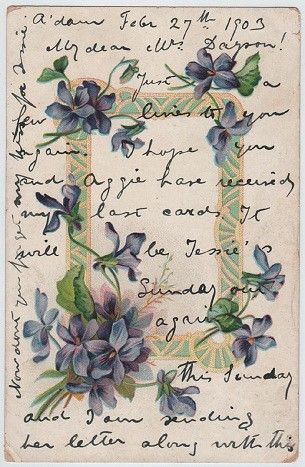 A'dam Febr 27th 1903
My dear Mrs. Dayson!
Just a
few lines to you
again. I hope you
and Aggie have received
my last cards. It
will be Jessie's
Sunday out
again
This Sunday
and I am sending
her letter along with this
Now don't you forget any
for Jessie